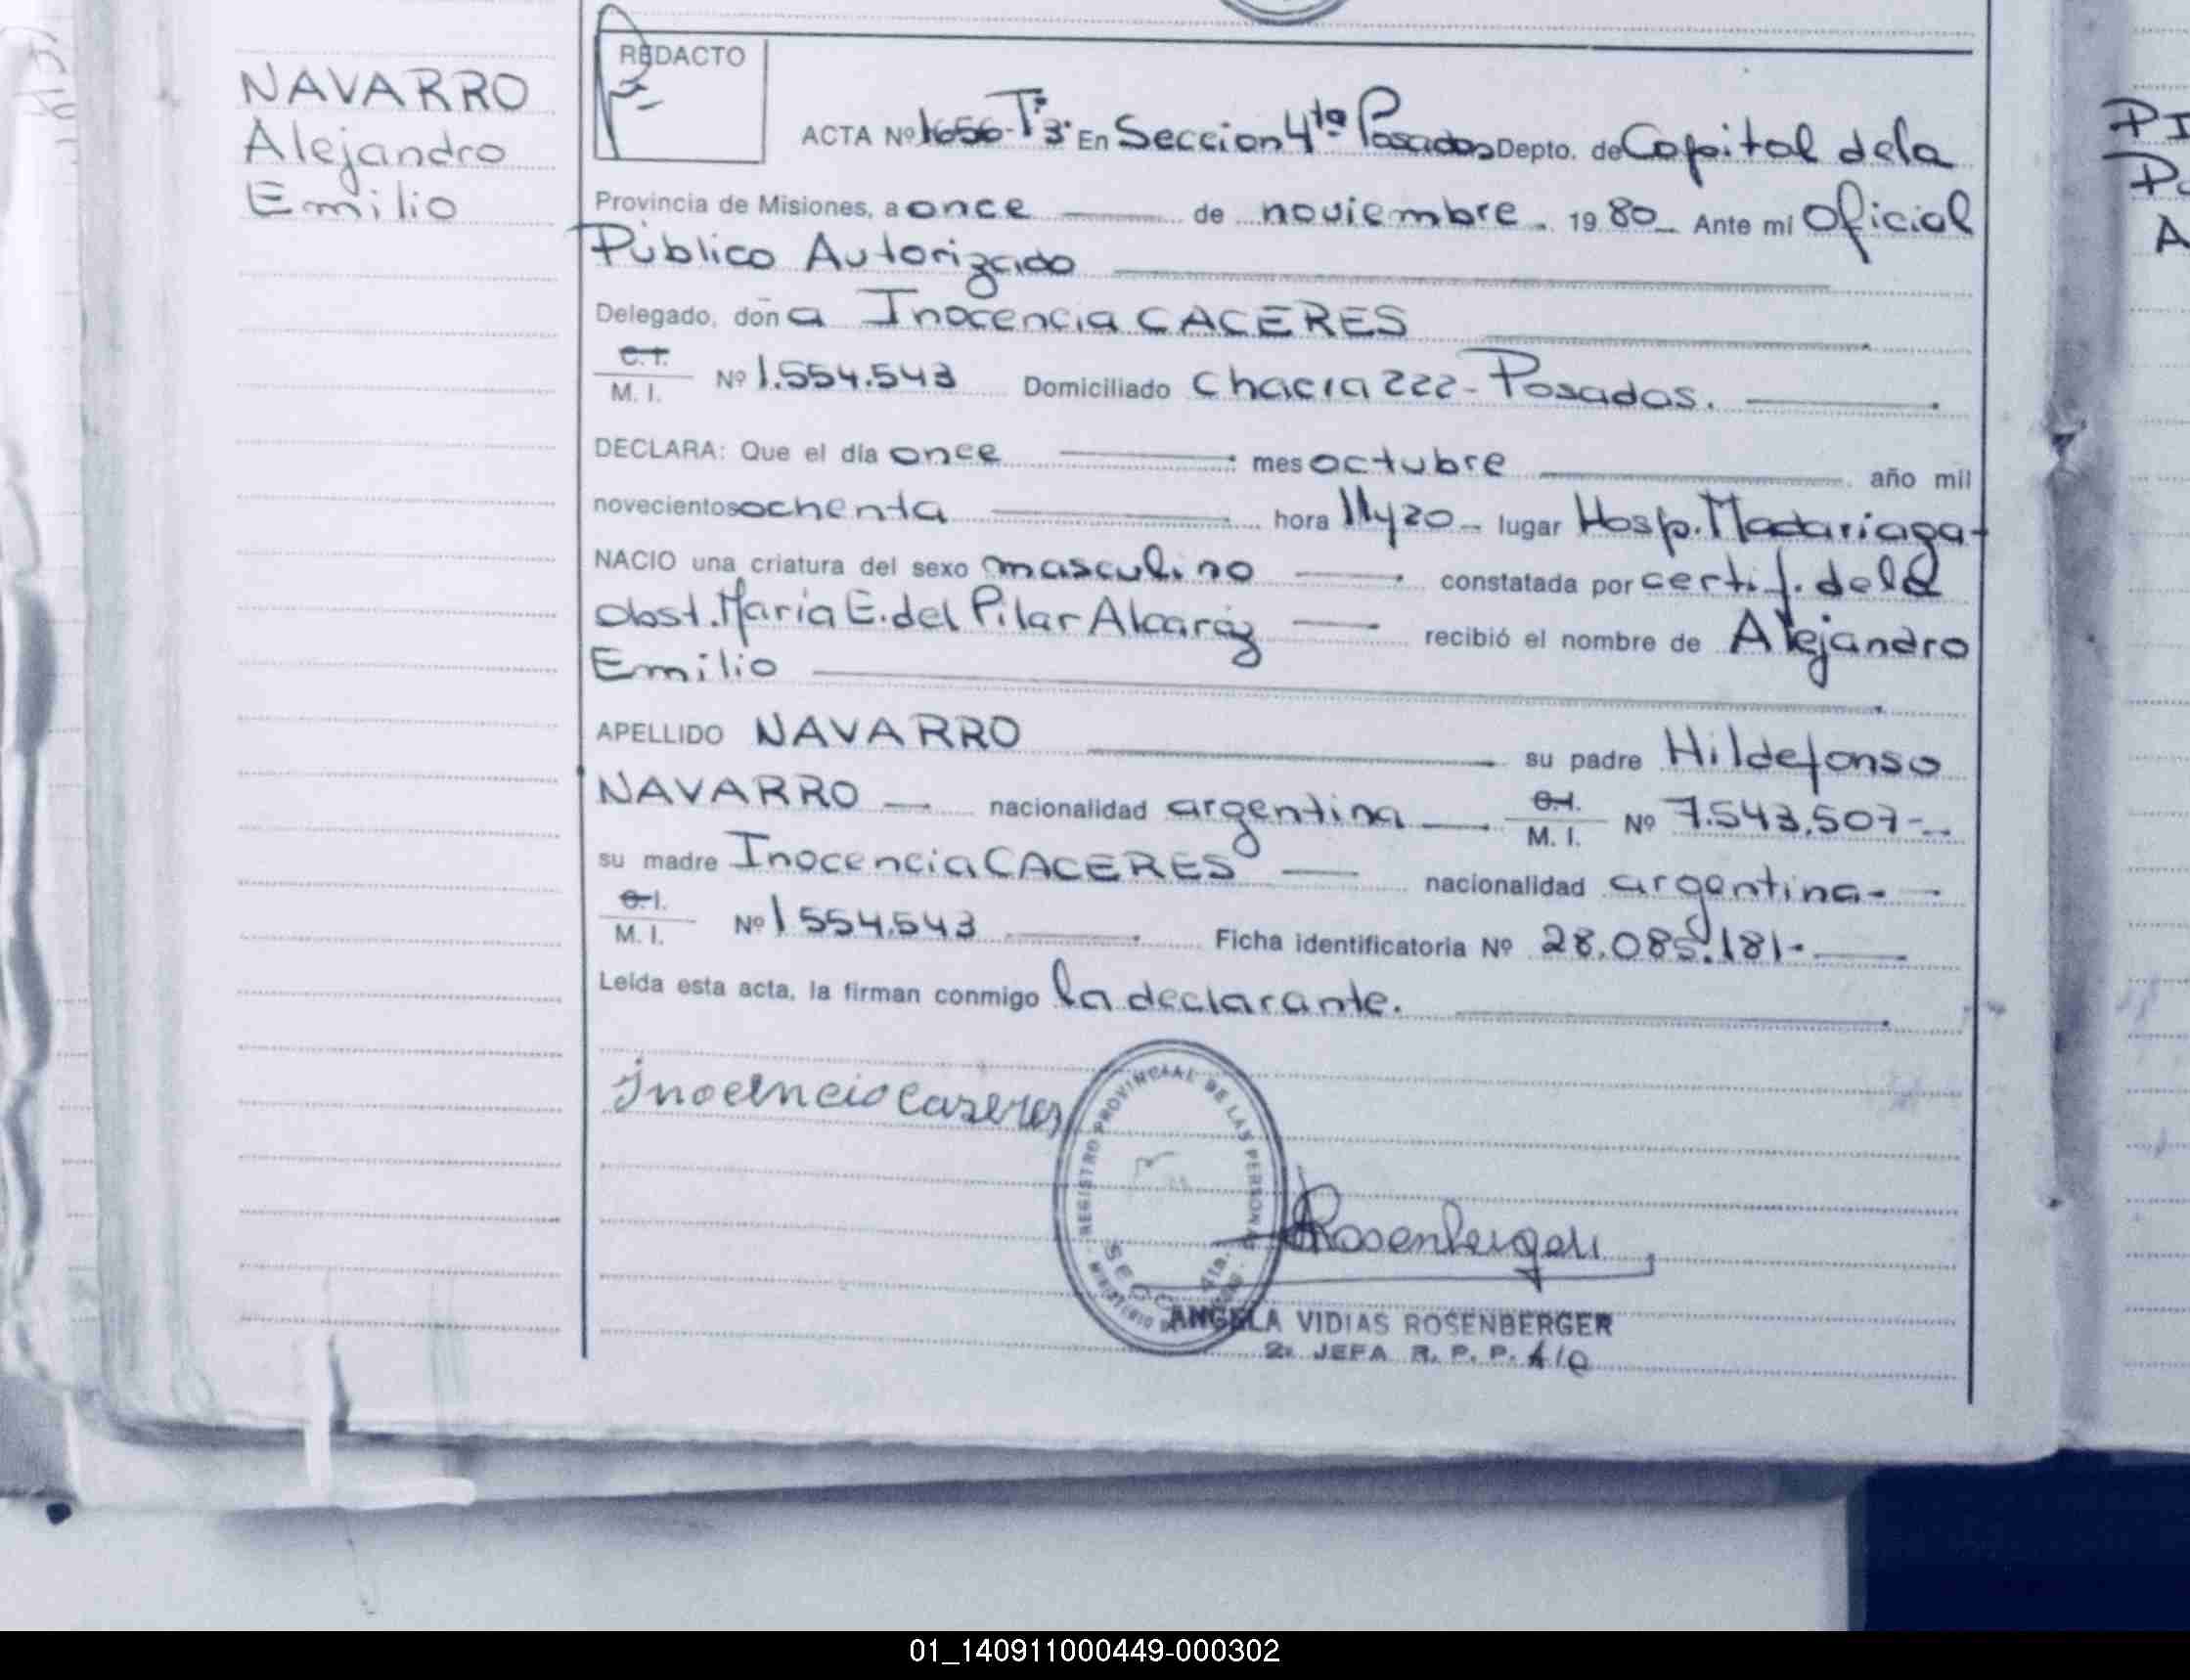 NAVARRO
Alejandro
Emilio
REDACTO
ACTA Nº 1656-Tº3º En Seccion 4ta Posadas Depto. de Capital de la
Provincia de Misiones, a once de noviembre. 1980 Ante mi Oficial
Público Autorizado
Delegado, doña Inocencia CACERES
C.I.
M. I. Nº 1.554.543 Domiciliado Chacra 222-Posadas.
DECLARA: Que el día once mes octubre año mil
novecientos ochenta hora 11y20 lugar Hosp. Madariaga-
NACIO una criatura del sexo masculino constatada por certif. de la
Obst. María E. del Pilar Alcaráz recibió el nombre de Alejandro
Emilio
APELLIDO NAVARRO su padre Hildefonso
NAVARRO nacionalidad argentina C.I.
M. I. Nº 7.543.507-
su madre Inocencia CACERES nacionalidad argentina-
C.I.
M. I. Nº 1554.543 Ficha identificatoria Nº 28.085.181-
Leída esta acta, la firman conmigo la declarante.
Inocencio Caseres
REGISTRO PROVINCIAL DE LAS PERSONAS
SECC. 4ta.
MINISTERIO DE
Rosenberger
ANGELA VIDIAS ROSENBERGER
2ª JEFA R. P. P. A/C
PI
A
01_140911000449-000302